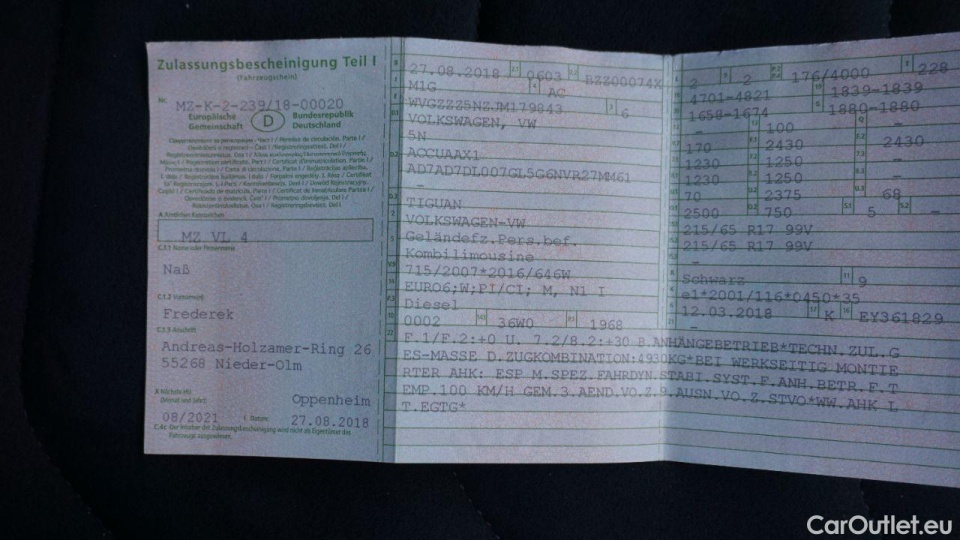 Zulassungsbescheinigung Teil I
(Fahrzeugschein)
Nr. MZ-K-2-239/18-00020
Europäische Gemeinschaft D Bundesrepublik Deutschland
MZ VL 4
C.1.1 Name oder Firmenname
Naß
C.1.2 Vorname(n)
Frederek
C.1.3 Anschrift
Andreas-Holzamer-Ring 26
55268 Nieder-Olm
Oppenheim
08/2021 I. Datum: 27.08.2018
C.4c Der Inhaber der Zulassungsbescheinigung wird nicht als Eigentümer des
Fahrzeugs ausgewiesen.
27.08.2018 0603 BZZ00074X
M1G AC
WVGZZZ5NZJM179843 6
VOLKSWAGEN, VW
5N
ACCUAAX1
AD7AD7DL007GL5G6NVR27MM61
-
TIGUAN
VOLKSWAGEN-VW
Geländefz.Pers.bef.
Kombilimousine
715/2007*2016/646W
EURO6;W;PI/CI; M, N1 I
Diesel
0002 36W0 1968
2 2 176/4000 228
4701-4821 1839-1839
1658-1674 1880-1880
- 100 -
170 2430 2430
1230 1250 -
1230 1250 -
70 2375 68
2500 750 5 -
215/65 R17 99V
215/65 R17 99V
-
Schwarz 9
e1*2001/116*0450*35
12.03.2018 K EY361829
-
F.1/F.2:+0 U. 7.2/8.2:+30 B.ANHÄNGEBETRIEB*TECHN.ZUL.G
ES-MASSE D.ZUGKOMBINATION:4930KG*BEI WERKSEITIG MONTIE
RTER AHK: ESP M.SPEZ.FAHRDYN.STABI.SYST.F.ANH.BETR.F.T
EMP.100 KM/H GEM.3.AEND.VO.Z.9.AUSN.VO.Z.STVO*WW.AHK L
T.EGTG*
CarOutlet.eu